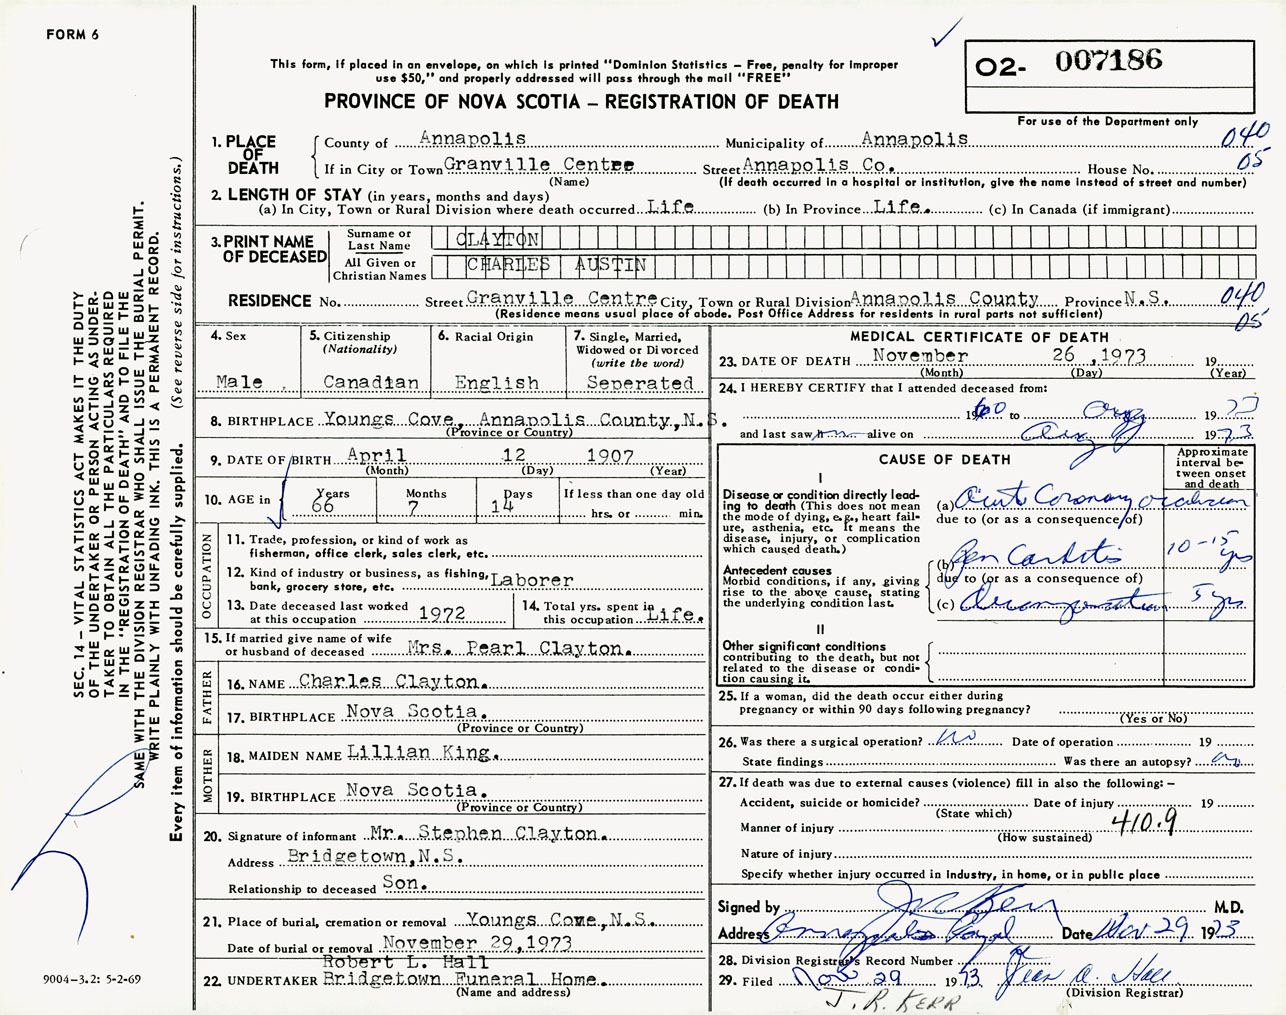 FORM 6
This form, if placed in an envelope, on which is printed "Dominion Statistics – Free, penalty for improper
use $50," and properly addressed will pass through the mail "FREE"
PROVINCE OF NOVA SCOTIA – REGISTRATION OF DEATH
02- 007186
For use of the Department only
1. PLACE OF DEATH
County of Annapolis Municipality of Annapolis 040
If in City or Town Granville Centre Street Annapolis Co. House No. 05
(Name) (If death occurred in a hospital or institution, give the name instead of street and number)
2. LENGTH OF STAY (in years, months and days)
(a) In City, Town or Rural Division where death occurred Life (b) In Province Life. (c) In Canada (if immigrant)
3. PRINT NAME OF DECEASED
Surname or Last Name CLAYTON
All Given or Christian Names CHARLES AUSTIN
RESIDENCE No. Street Granville Centre City, Town or Rural Division Annapolis County Province N.S. 040
(Residence means usual place of abode. Post Office Address for residents in rural parts not sufficient) 05
4. Sex
Male
5. Citizenship
(Nationality)
Canadian
6. Racial Origin
English
7. Single, Married,
Widowed or Divorced
(write the word)
Seperated
8. BIRTHPLACE Youngs Cove, Annapolis County, N.S.
(Province or Country)
9. DATE OF BIRTH April 12 1907
(Month) (Day) (Year)
10. AGE in
Years Months Days If less than one day old
66 7 14 hrs. or min.
OCCUPATION
11. Trade, profession, or kind of work as
fisherman, office clerk, sales clerk, etc.
12. Kind of industry or business, as fishing,
bank, grocery store, etc. Laborer
13. Date deceased last worked
at this occupation 1972
14. Total yrs. spent in
this occupation Life.
15. If married give name of wife
or husband of deceased Mrs. Pearl Clayton.
FATHER
16. NAME Charles Clayton.
17. BIRTHPLACE Nova Scotia.
(Province or Country)
MOTHER
18. MAIDEN NAME Lillian King.
19. BIRTHPLACE Nova Scotia.
(Province or Country)
20. Signature of informant Mr. Stephen Clayton.
Address Bridgetown, N.S.
Relationship to deceased Son.
21. Place of burial, cremation or removal Youngs Cove, N.S.
Date of burial or removal November 29, 1973
Robert L. Hall
22. UNDERTAKER Bridgetown Funeral Home.
(Name and address)
MEDICAL CERTIFICATE OF DEATH
23. DATE OF DEATH November 26, 1973 19
(Month) (Day) (Year)
24. I HEREBY CERTIFY that I attended deceased from:
1960 to Aug 1973
and last saw him alive on Aug 1973
CAUSE OF DEATH
Approximate
interval be-
tween onset
and death
I
Disease or condition directly lead-
ing to death (This does not mean
the mode of dying, e.g., heart fail-
ure, asthenia, etc. It means the
disease, injury, or complication
which caused death.)
(a) Acute Coronary occlusion
due to (or as a consequence of)
Antecedent causes
Morbid conditions, if any, giving
rise to the above cause, stating
the underlying condition last.
(b) 10-15 yrs
due to (or as a consequence of)
(c) Decompensation 5 yrs
II
Other significant conditions
contributing to the death, but not
related to the disease or condi-
tion causing it.
25. If a woman, did the death occur either during
pregnancy or within 90 days following pregnancy?
(Yes or No)
26. Was there a surgical operation? no Date of operation 19
State findings Was there an autopsy? no
27. If death was due to external causes (violence) fill in also the following: –
Accident, suicide or homicide? Date of injury 19
(State which)
Manner of injury 410.9
(How sustained)
Nature of injury
Specify whether injury occurred in industry, in home, or in public place
Signed by J R Kerr M.D.
Address Annapolis Royal Date Nov 29 1973
28. Division Registrar's Record Number
29. Filed Nov 29 1973 Jean A. Hall
(Division Registrar)
J. R. KERR
SEC. 14 – VITAL STATISTICS ACT MAKES IT THE DUTY
OF THE UNDERTAKER OR PERSON ACTING AS UNDER-
TAKER TO OBTAIN ALL THE PARTICULARS REQUIRED
IN THE "REGISTRATION OF DEATH" AND TO FILE THE
SAME WITH THE DIVISION REGISTRAR WHO SHALL ISSUE THE BURIAL PERMIT.
WRITE PLAINLY WITH UNFADING INK. THIS IS A PERMANENT RECORD.
Every item of information should be carefully supplied. (See reverse side for instructions.)
9004–3.2: 5-2-69